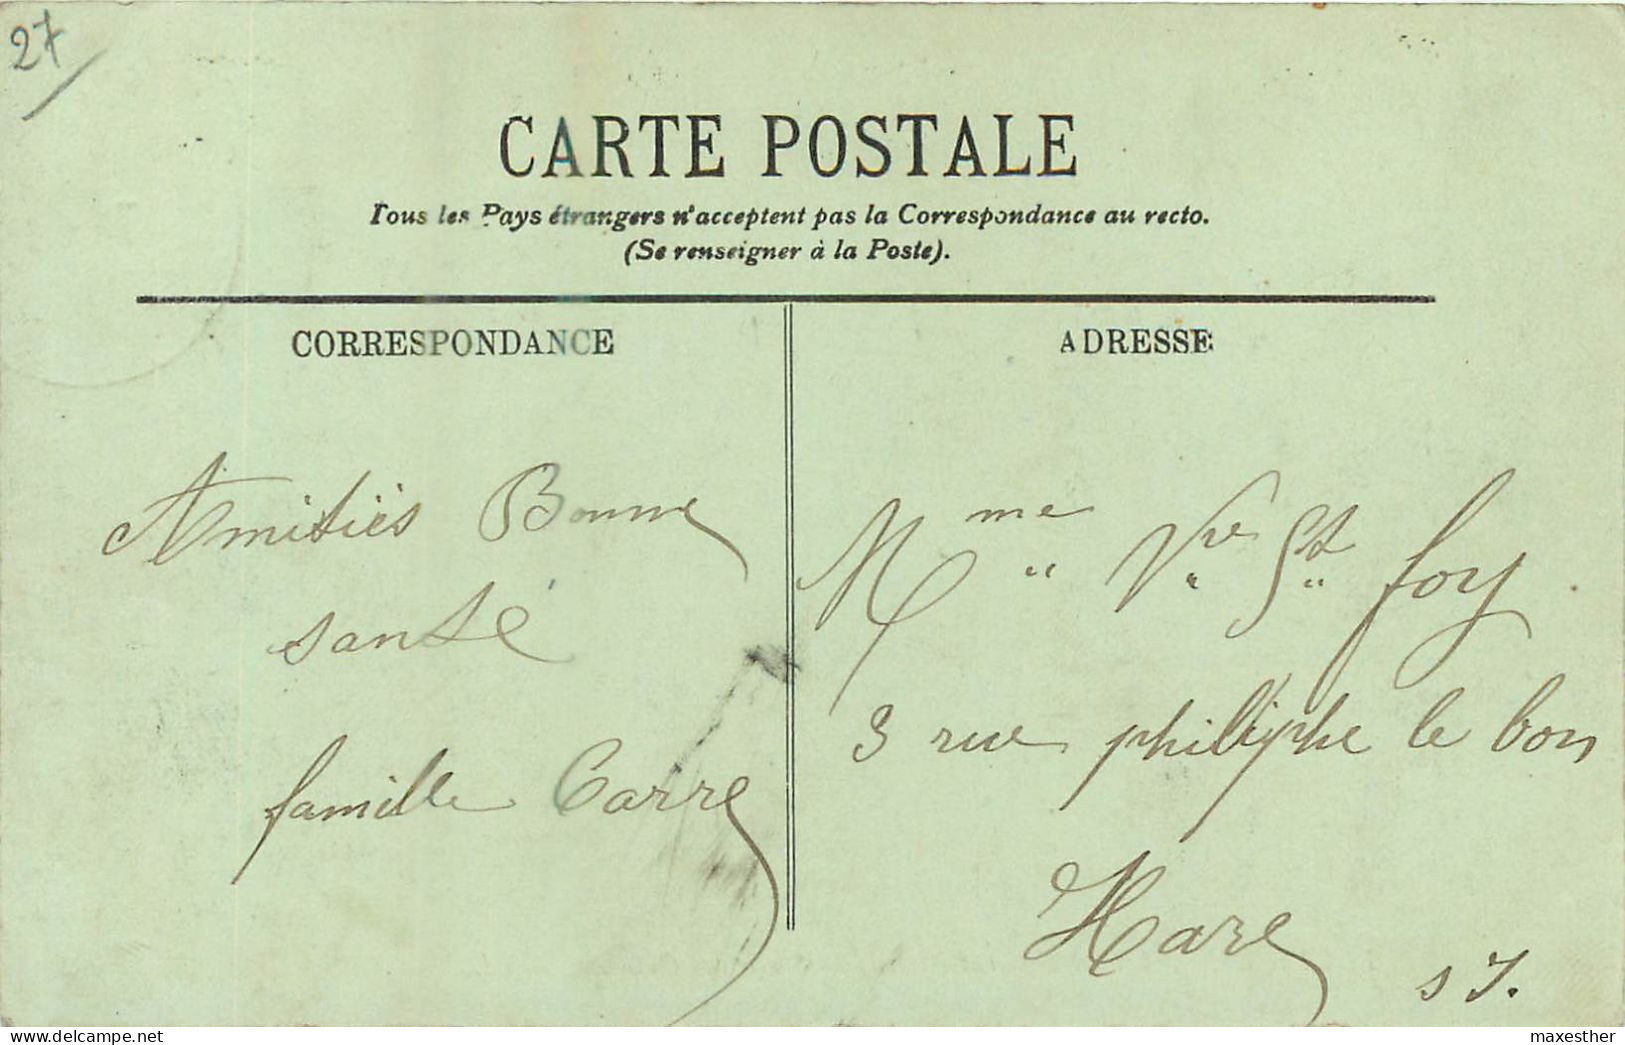 27
CARTE POSTALE
Tous les Pays étrangers n'acceptent pas la Correspondance au recto.
(Se renseigner à la Poste).
CORRESPONDANCE
Amitiés Bonne
santé
famille Carre
ADRESSE
Mme Vve St foy
3 rue philiphe le bon
Havre
S I.
www.delcampe.net
maxesther